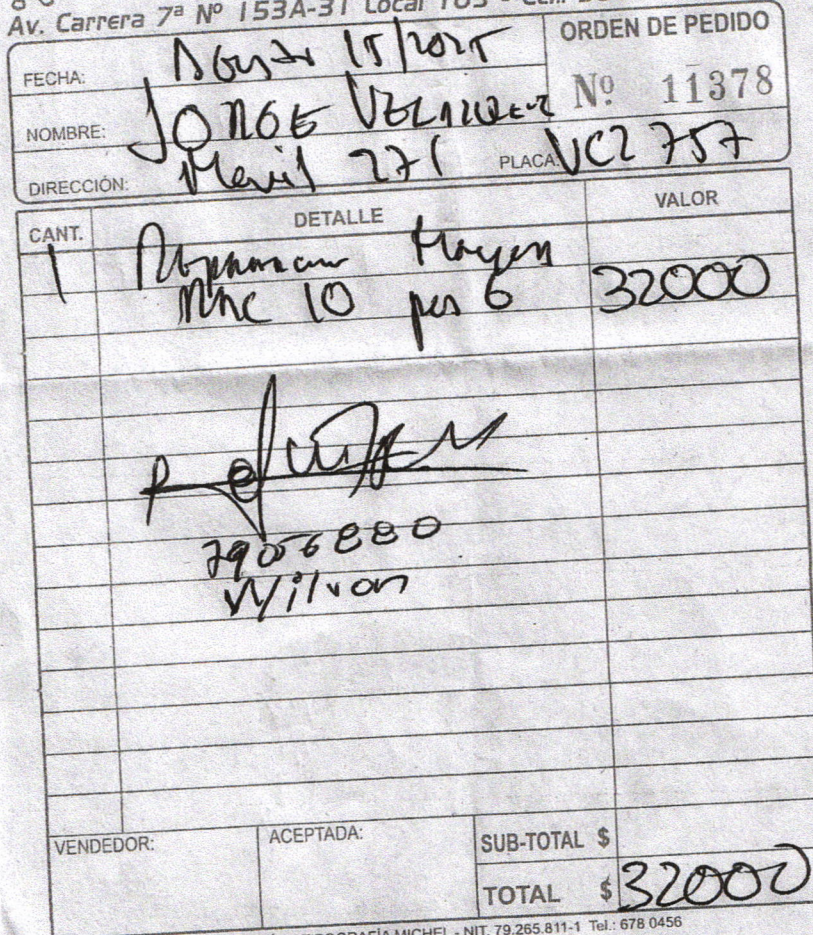 Av. Carrera 7ª Nº 153A-31 Local
ORDEN DE PEDIDO
FECHA: Agosto 15/2025
Nº 11378
NOMBRE: JORGE VELAZQUEZ
DIRECCIÓN: Movil 271 PLACA: VCZ 757
CANT. DETALLE VALOR
1
10 por 6 32000
79056880
Wilson
VENDEDOR: ACEPTADA: SUB-TOTAL $
TOTAL $ 32000
MICHEL - NIT. 79.265.811-1 Tel.: 678 0456